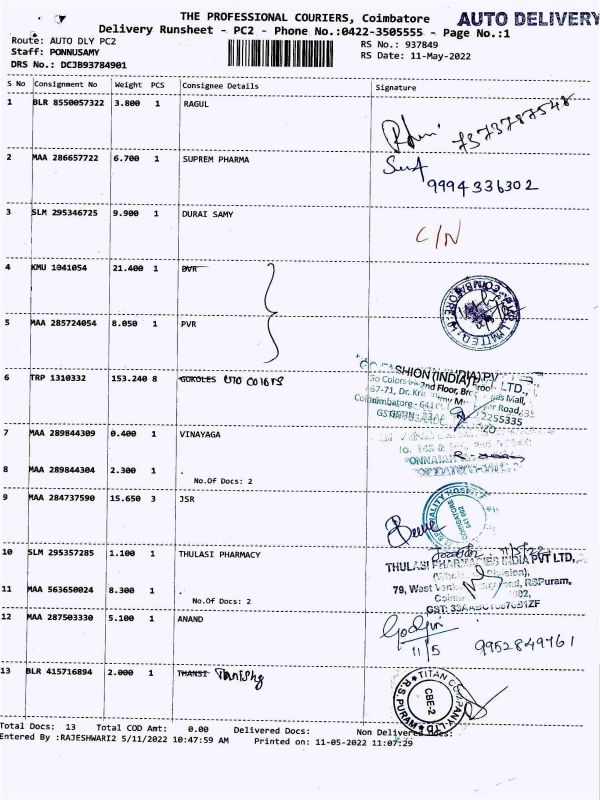 THE PROFESSIONAL COURIERS, Coimbatore AUTO DELIVERY
Delivery Runsheet - PC2 - Phone No.:0422-3505555 - Page No.:1
Route: AUTO DLY PC2 RS No.: 937849
Staff: PONNUSAMY RS Date: 11-May-2022
DRS No.: DCJB93784901
S No Consignment No Weight PCS Consignee Details Signature
1 BLR 8550057322 3.800 1 RAGUL
7373787548
2 MAA 286657722 6.700 1 SUPREM PHARMA
9994336302
3 SLM 295346725 9.900 1 DURAI SAMY C/N
4 KMU 1041054 21.400 1 DVR
5 MAA 285724054 8.050 1 PVR
6 TRP 1310332 153.240 8 GOKOLES
FASHION (INDIA) PVT LTD.,
Go Colors 2nd Floor,
67-71, Dr.
7 MAA 289844309 0.400 1 VINAYAGA
8 MAA 289844304 2.300 1
No.Of Docs: 2
9 MAA 284737590 15.650 3 JSR
COIMBATORE
641 002
10 SLM 295357285 1.100 1 THULASI PHARMACY
11/5/22
THULASI PHARMACIES INDIA PVT LTD.,
79, West RSPuram,
11 MAA 563650024 8.300 1 .
No.Of Docs: 2
12 MAA 287503330 5.100 1 ANAND
11/5 9952849761
13 BLR 415716894 2.000 1 THANSI Tanishq
TITAN COMPANY LTD
CBE-2
R.S. PURAM
Total Docs: 13 Total COD Amt: 0.00 Delivered Docs: Non Delivered Docs:
Entered By :RAJESHWARI2 5/11/2022 10:47:59 AM Printed on: 11-05-2022 11:07:29